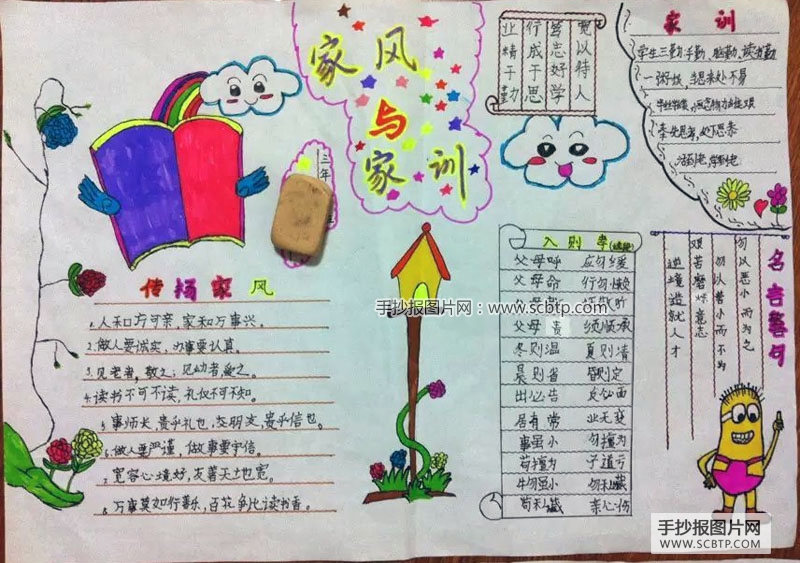 家风
与
家训
三年
宽以待人
笃忠好学
行成于思
业精于勤
家训
一粥一饭，当思来处不易
传扬家风
1.人和方可亲，家和万事兴。
2.做人要诚实，办事要认真。
3.见老者，敬之；见幼者，爱之。
4.读书不可不读，礼仪不可不知。
5.事师长，贵乎礼也，交朋友，贵乎信也。
6.做人要严谨，做事要守信。
7.宽容心境好，友善天地宽。
8.万事莫如行善乐，百花争比读书香。
手抄报图片网：www.scbtp.com
入则孝
父母呼 应勿缓
父母命 行勿懒
父母
父母责 须顺承
冬则温 夏则凊
晨则省 昏则定
出必告 反必面
居有常 业无变
事虽小 勿擅为
苟擅为 子道亏
物虽小 勿私藏
苟私藏 亲心伤
名言警句
勿以恶小而为之
勿以善小而不为
艰苦磨炼意志
逆境造就人才
手抄报图片网
WWW.SCBTP.COM